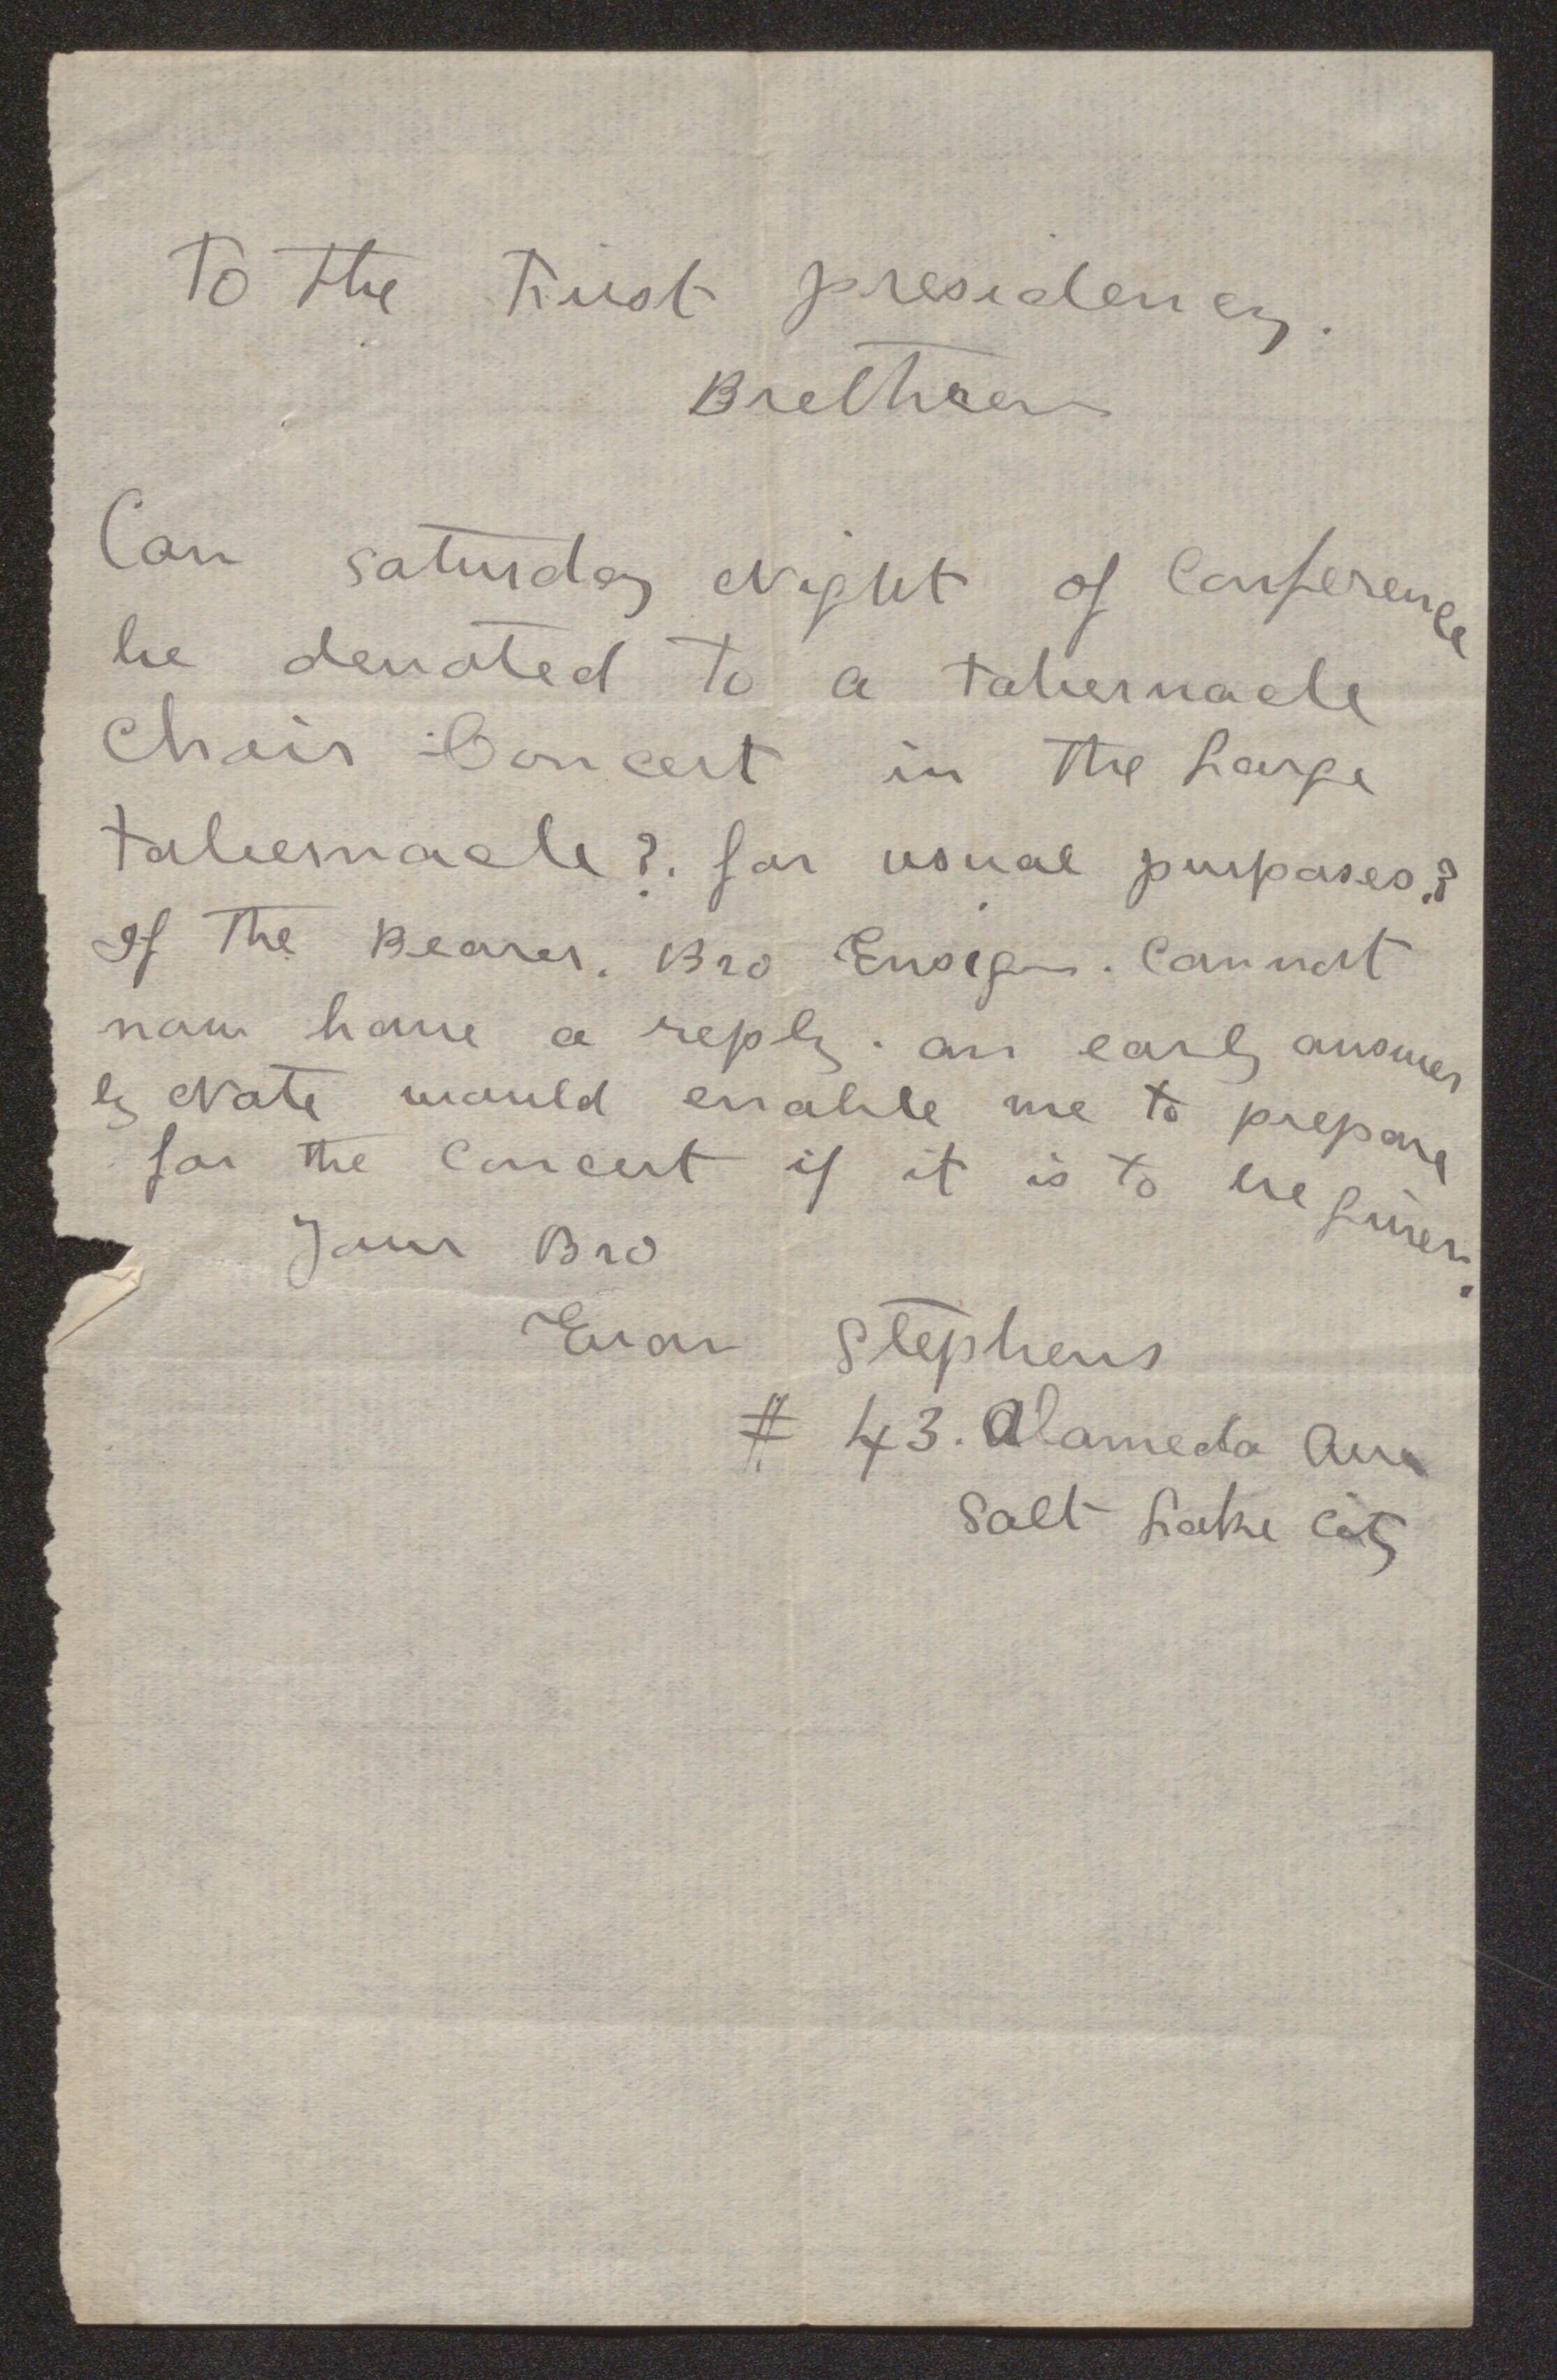 To the First presidency.
Brethren
Can saturday Night of Conference
be devoted to a tabernacle
Choir Concert in the Large
tabernacle?. for usual purposes.?
If the Bearer. Bro Ensign. Cannot
now have a reply. an early answer
by Note would enable me to prepare
for the Concert if it is to be given.
Your Bro
Evan Stephens
# 43. Alameda Ave
Salt Lake City